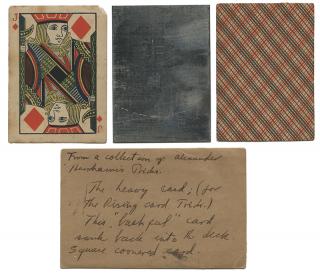 J
J
From a collection of Alexander
Herrmann's Tricks.
The heavy card, (for
the Rising card Trick.)
This "bashful" card
sank back into the deck
Square cornered card.